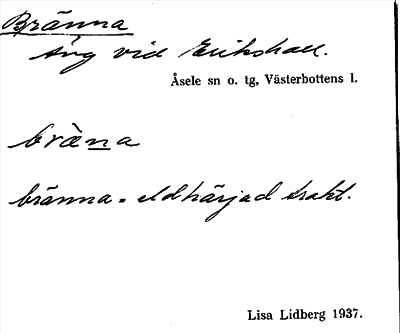 Bränna
äng vid Erikshall.
Åsele sn o. tg, Västerbottens l.
bràna
bränna = eldhärjad trakt.
Lisa Lidberg 1937.